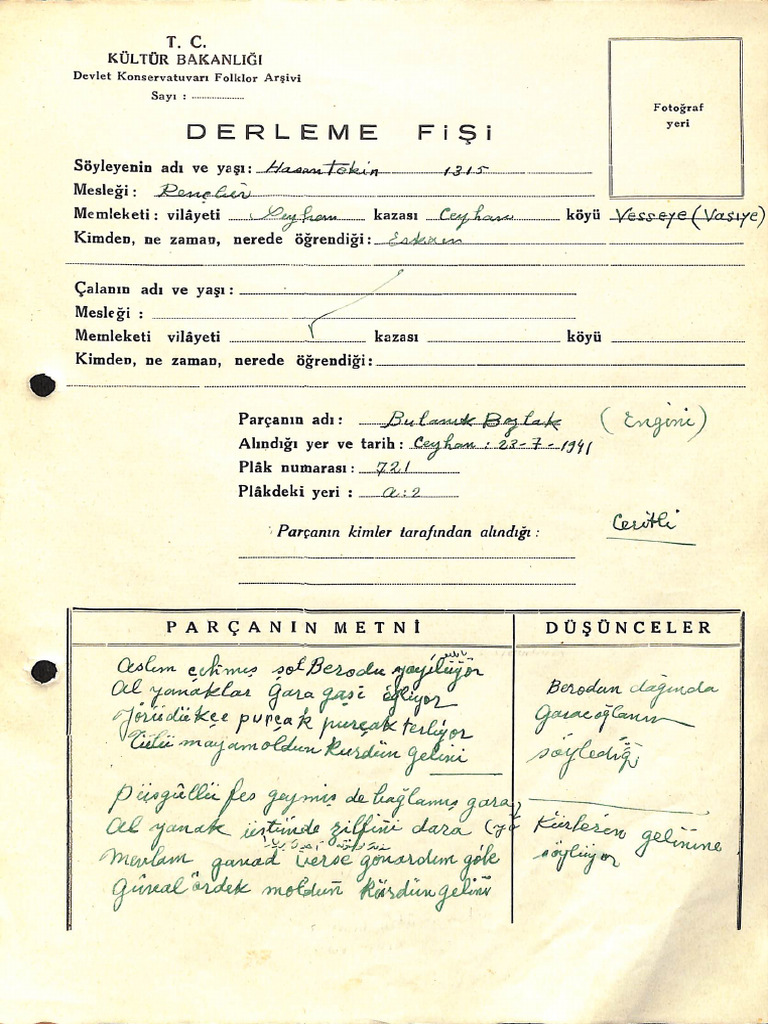 T. C.
KÜLTÜR BAKANLIĞI
Devlet Konservatuvarı Folklor Arşivi
Sayı :
Fotoğraf
yeri
DERLEME FİŞİ
Söyleyenin adı ve yaşı: Hasan Tekin 1315
Mesleği: Rençber
Memleketi: vilâyeti Seyhan kazası Ceyhan köyü Vesseye (Vasıye)
Kimden, ne zaman, nerede öğrendiği: Eskiden
Çalanın adı ve yaşı:
Mesleği :
Memleketi vilâyeti kazası köyü
Kimden, ne zaman, nerede öğrendiği:
Parçanın adı: Bulanık Bozlak (Engini)
Alındığı yer ve tarih: Ceyhan : 23-7-1941
Plâk numarası: 721
Plâkdeki yeri : a:2
Ceritli
Parçanın kimler tarafından alındığı :
PARÇANIN METNİ
DÜŞÜNCELER
Aslım çekmiş şol Berodu yayılüyor
Al yanaklar gara gaşi eğliyor
Yörüdükçe purçak purçak terliyor
Tülü mayamoldun Kürdün gelini
Püsgüllü fes geymiş de bağlamış gara
Al yanak üstünde zilfini dara
Mevlam ganad verse gonardım göle
Güveal ördek moldun Kürdün gelini
Berodan dağında
Garacoğlanın
söylediği
Kürtlerin gelinine
söylüyor